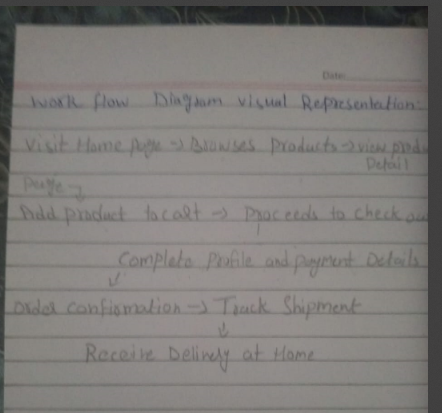 Date:
Work flow Diagram visual Representation:
Visit Home page → Browses Products → view prod
Detail
page →
Add product to cart → Proceeds to check ou
Complete Profile and payment Details
↓
Order confirmation → Track Shipment
↓
Receive Delivery at Home